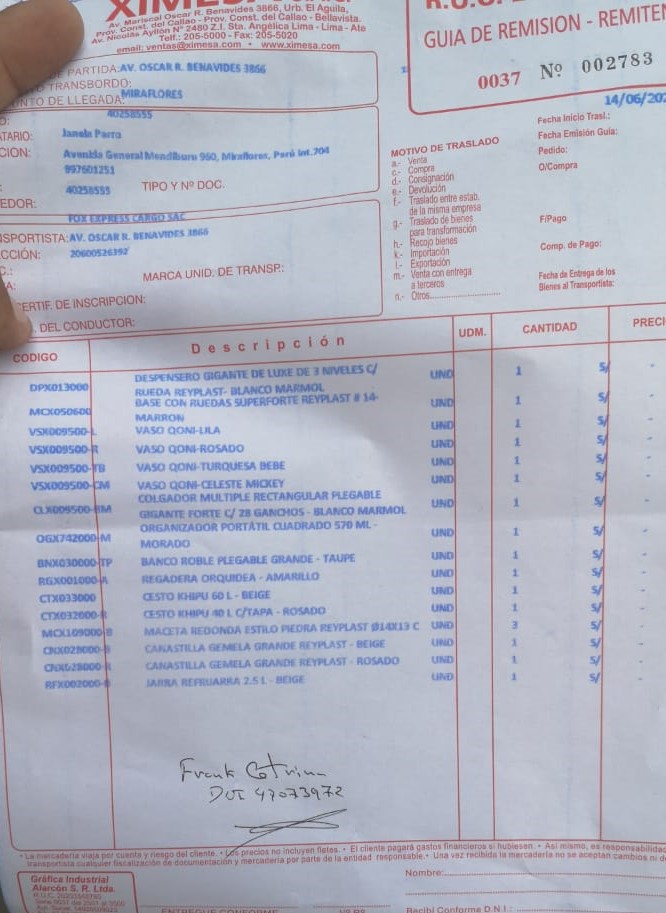 XIMESA
Av. Mariscal Oscar R. Benavides 3866, Urb. El Aguila,
Prov. Const. del Callao - Prov. Const. del Callao - Bellavista.
Av. Nicolás Ayllón Nº 2480 Z.I. Sta. Angélica Lima - Lima - Ate
Telf.: 205-5000 - Fax: 205-5020
email: ventas@ximesa.com • www.ximesa.com
GUIA DE REMISION - REMITEN
0037 Nº 002783
14/06/202
PARTIDA: AV. OSCAR R. BENAVIDES 3866
TRANSBORDO:
NTO DE LLEGADA: MIRAFLORES
40258555
TARIO: Janela Parra
CION: Avenida General Mendiburo 960, Miraflores, Perú int.704
997601251
40258555 TIPO Y Nº DOC.
EDOR:
FOX EXPRESS CARGO SAC
SPORTISTA: AV. OSCAR R. BENAVIDES 3866
CCIÓN: 20600526392
MARCA UNID. DE TRANSP.:
ERTIF. DE INSCRIPCION:
DEL CONDUCTOR:
MOTIVO DE TRASLADO
a.- Venta
c.- Compra
d.- Consignación
e.- Devolución
f.- Traslado entre estab.
de la misma empresa
g.- Traslado de bienes
para transformación
h.- Recojo bienes
k.- Importación
l.- Exportación
m.- Venta con entrega
a terceros
n.- Otros
Fecha Inicio Trasl.:
Fecha Emisión Guia:
Pedido:
O/Compra
F/Pago
Comp. de Pago:
Fecha de Entrega de los
Bienes al Transportista:
CODIGO Descripción UDM. CANTIDAD PRECI
DPX013000 DESPENSERO GIGANTE DE LUXE DE 3 NIVELES C/ UND 1 S/ -
RUEDA REYPLAST- BLANCO MARMOL
MCX050600 BASE CON RUEDAS SUPERFORTE REYPLAST # 14- UND 1 S/ -
MARRON
VSX009500-L VASO QONI-LILA UND 1 S/ -
VSX009500-R VASO QONI-ROSADO UND 1 S/ -
VSX009500-TB VASO QONI-TURQUESA BEBE UND 1 S/ -
VSX009500-CM VASO QONI-CELESTE MICKEY UND 1 S/ -
CLX005500-BM COLGADOR MULTIPLE RECTANGULAR PLEGABLE UND 1 S/ -
GIGANTE FORTE C/ 28 GANCHOS - BLANCO MARMOL
OGX742000-M ORGANIZADOR PORTÁTIL CUADRADO 570 ML - UND 1 S/ -
MORADO
BNX030000-TP BANCO ROBLE PLEGABLE GRANDE - TAUPE UND 1 S/ -
RGX001000-A REGADERA ORQUIDEA - AMARILLO UND 1 S/ -
CTX033000 CESTO KHIPU 60 L - BEIGE UND 1 S/ -
CTX032000-R CESTO KHIPU 40 L C/TAPA - ROSADO UND 1 S/ -
MCX109000-B MACETA REDONDA ESTILO PIEDRA REYPLAST Ø14X13 C UND 3 S/ -
CNX028000-B CANASTILLA GEMELA GRANDE REYPLAST - BEIGE UND 1 S/ -
CNX028000-R CANASTILLA GEMELA GRANDE REYPLAST - ROSADO UND 1 S/ -
RFX002000-B JARRA REFRIJARRA 2.5 L - BEIGE UND 1 S/ -
Frank Cotrina
DNI 47073972
• La mercadería viaja por cuenta y riesgo del cliente. • Los precios no incluyen fletes. • El cliente pagará gastos financieros si hubiesen. • Así mismo, es responsabilidad
transportista cualquier fiscalización de documentación y mercadería por parte de la entidad responsable. • Una vez recibida la mercadería no se aceptan cambios ni
Gráfica Industrial
Alarcón S. R. Ltda.
Nombre:
ENTREGUE CONFORME
Recibí Conforme D.N.I.: